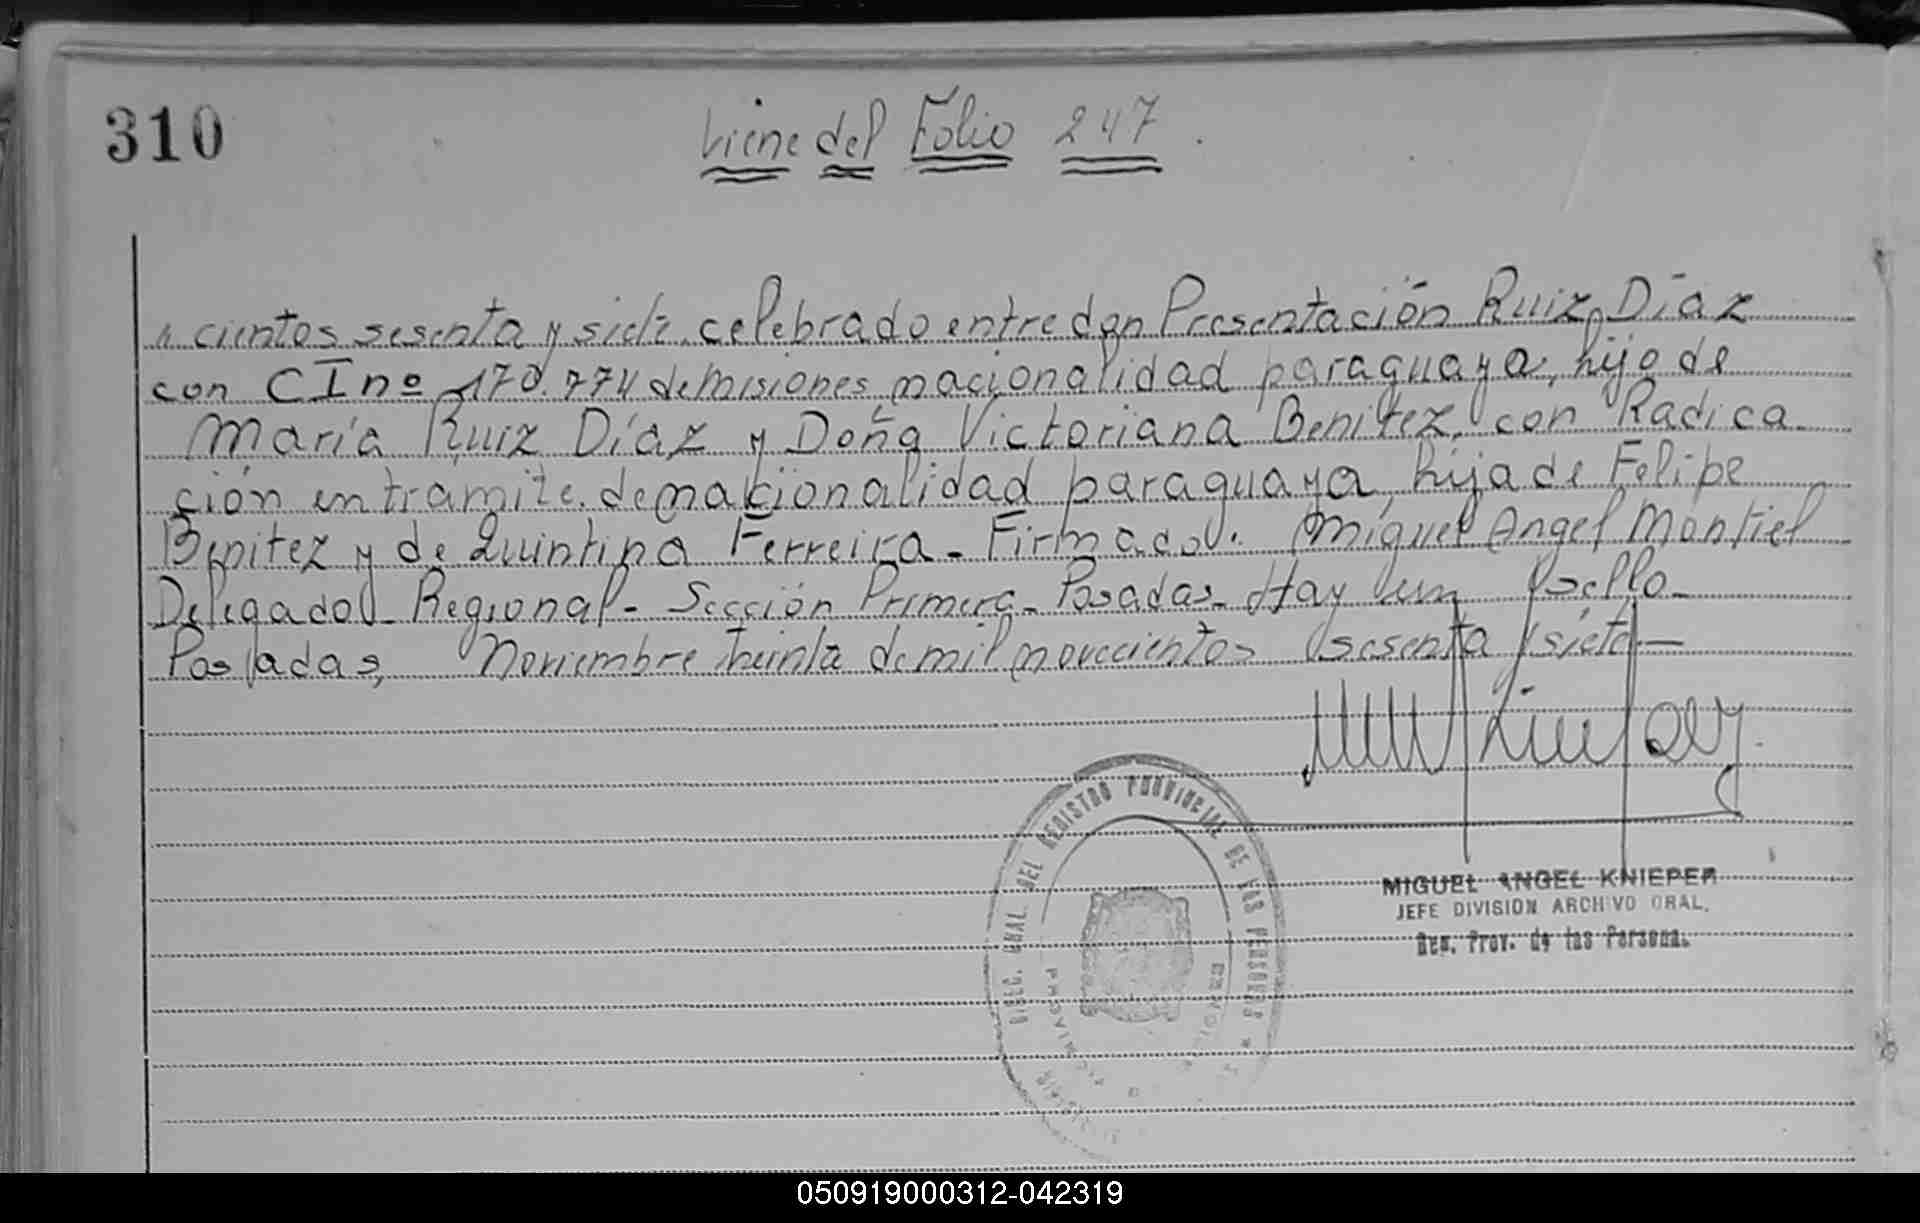 310
Viene del Folio 247.
cientos sesenta y siete. celebrado entre don Presentación Ruiz Díaz
con CI nº 170.774 de Misiones, nacionalidad paraguaya, hijo de
María Ruiz Díaz y Doña Victoriana Benitez, con Radica-
ción en tramite. de nacionalidad paraguaya, hija de Felipe
Benitez y de Quintina Ferreira - Firmado: Miguel Angel Montiel
Delegado Regional - Sección Primera - Posadas - Hay un sello -
Posadas, Noviembre treinta de mil novecientos sesenta y siete -
DIREC. GRAL. DEL REGISTRO PROVINCIAL DE LAS PERSONAS
MIGUEL ANGEL KNIEPER
JEFE DIVISION ARCHIVO GRAL.
Reg. Prov. de las Persona.
050919000312-042319